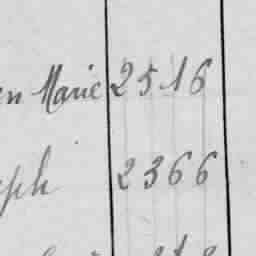 en Marie 2516
eph 2366